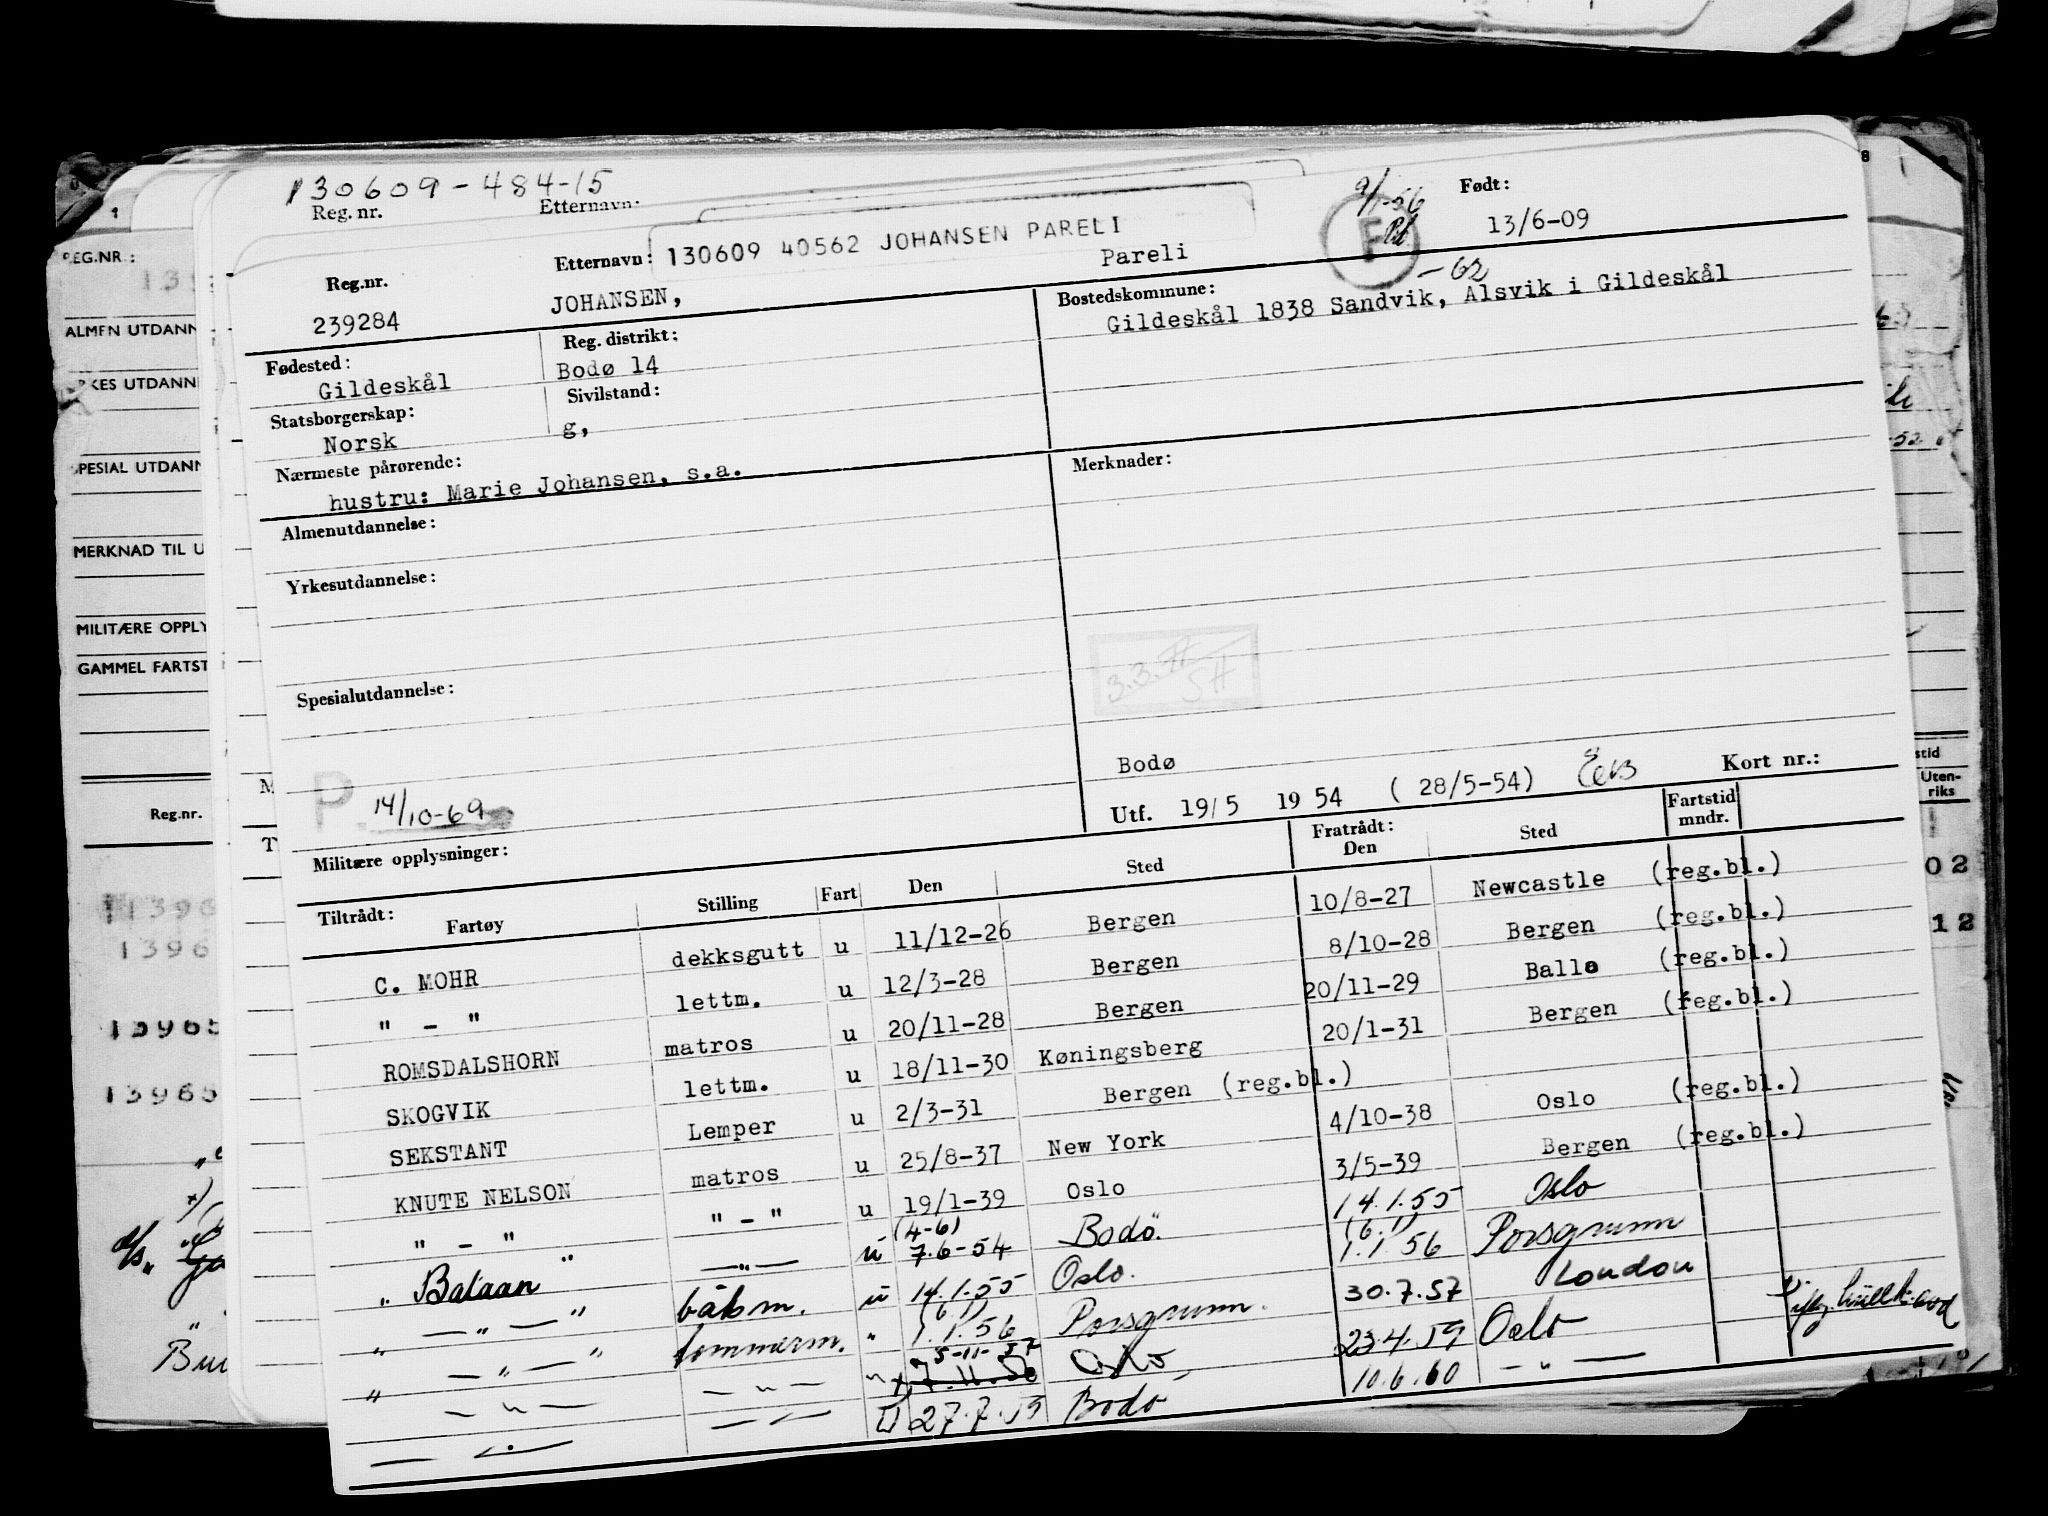 130609-484-15
Reg. nr. Etternavn:
130609 40562 JOHANSEN PARELI
9/1-56
F
Født:
13/6-09
Reg.nr. Etternavn: Pareli
239284 JOHANSEN,
-62
Bostedskommune:
Gildeskål 1838 Sandvik, Alsvik i Gildeskål
Fødested: Reg. distrikt:
Gildeskål Bodø 14
Statsborgerskap: Sivilstand:
Norsk g,
Nærmeste pårørende:
hustru: Marie Johansen, s.a.
Merknader:
Almenutdannelse:
Yrkesutdannelse:
Spesialutdannelse:
3.3. SH
P. 14/10-69
Bodø
Utf. 19/5 1954 (28/5-54) Kort nr.:
Militære opplysninger:
Tiltrådt: Fratrådt: Fartstid
Fartøy Stilling Fart Den Sted Den Sted mndr.
C. MOHR dekksgutt u 11/12-26 Bergen 10/8-27 Newcastle (reg.bl.)
" - " lettm. u 12/3-28 Bergen 8/10-28 Bergen (reg.bl.)
ROMSDALSHORN matros u 20/11-28 Bergen 20/11-29 Ballo (reg.bl.)
SKOGVIK lettm. u 18/11-30 Køningsberg 20/1-31 Bergen (reg.bl.)
SEKSTANT Lemper u 2/3-31 Bergen (reg.bl.)
KNUTE NELSON matros u 25/8-37 New York 4/10-38 Oslo (reg.bl.)
" - " " - " u 19/1-39 Oslo 3/5-39 Bergen (reg.bl.)
(4-6)
" Bataan " — " — u 7.6-54 Bodö. 14.1.55 Oslo
(6.1)
— " — " båtsm. u 14.1.55 Oslo. 1.1.56 Porsgrunn
(6.1)
" — " — " tømmerm. " 1.1.56 Porsgrunn. 30.7.57 London
5-11-57
" — " — — " — " x) 7.11.58 Oslo, 23.4.59 Oslo
— . — — " — U 27.7.59 Bodö 10.6.60 — " —
REG.NR.:
ALMEN UTDANN
RKES UTDANN
SPESIAL UTDANN
MERKNAD TIL U
MILITÆRE OPPLY
GAMMEL FARTST
Reg.nr.
1396
1396
13965
13965
stid
Uten-
riks
02
12